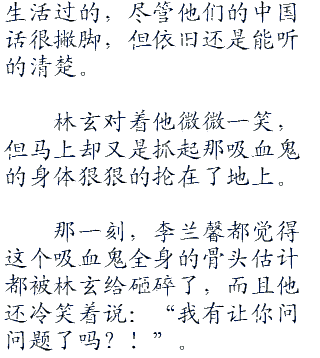 生活过的，尽管他们的中国
话很撇脚，但依旧还是能听
的清楚。
林玄对着他微微一笑，
但马上却又是抓起那吸血鬼
的身体狠狠的抡在了地上。
那一刻，李兰馨都觉得
这个吸血鬼全身的骨头估计
都被林玄给砸碎了，而且他
还冷笑着说：“我有让你问
问题了吗？！”。